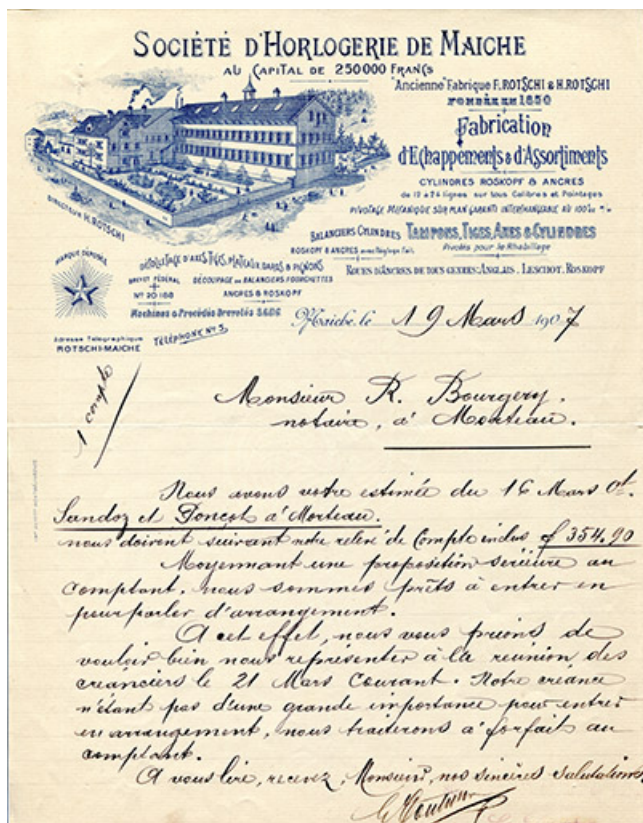 SOCIÉTÉ D'HORLOGERIE DE MAICHE
AU CAPITAL DE 250000 FRANCS
"Ancienne" Fabrique F. ROTSCHI & H. ROTSCHI
FONDÉE EN 1850
Fabrication
d'Echappements & d'Assortiments
CYLINDRES ROSKOPF & ANCRES
de 10 à 24 lignes sur tous Calibres et Pointages
PIVOTAGE MÉCANIQUE SUR PLAN GARANTI INTERCHANGEABLE AU 100e m/m
BALANCIERS CYLINDRES
ROSKOPF & ANCRES avec Réglage fait.
TAMPONS, TIGES, AXES & CYLINDRES
Pivotés pour le Rhabillage
ROUES D'ANCRES DE TOUS GENRES: ANGLAIS. LESCHOT. ROSKOPF
DIRECTEUR H. ROTSCHI
MARQUE DÉPOSÉE
DÉCOLLETAGE D'AXES, TIGES, PLATEAUX, DARDS & PIGNONS
BREVET FÉDÉRAL
No 20168
DÉCOUPAGE DE BALANCIERS FOURCHETTES
ANCRES & ROSKOPF
Machines & Procédés Brevetés S.G.D.G.
Adresse Télégraphique
ROTSCHI-MAICHE
TÉLÉPHONE No 5
Maiche, le 19 Mars 1907
1 compte
Monsieur R. Bourgery.
notaire, à Morteau.
Nous avons votre estimée du 16 Mars Ct.
Sandoz et Doncot à Morteau.
nous doivent suivant notre relevé de Compte inclus f 354,90
Moyennant une proposition sérieuse au
comptant. nous sommes prêts à entrer en
pourparler d'arrangement.
A cet effet, nous vous prions de
vouloir bien nous représenter à la réunion des
créanciers le 21 Mars Courant. Notre créance
n'étant pas d'une grande importance pour entrer
en arrangement, nous traiterons à forfait au
comptant.
A vous lire, recevez, Monsieur, nos sincères salutations